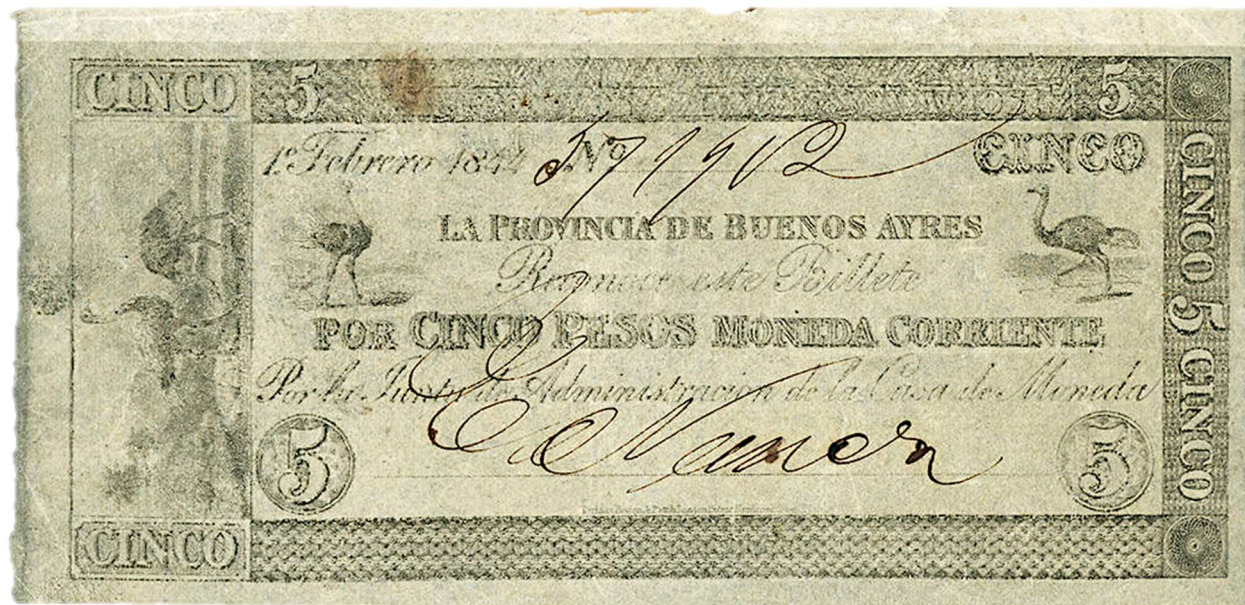 CINCO 5 5
1º Febrero 1844 Nº 571912 CINCO
LA PROVINCIA DE BUENOS AYRES
Promove este Billete
POR CINCO PESOS MONEDA CORRIENTE
Por la Junta de Administracion de la Casa de Moneda
5 5
CINCO
CINCO 5 CINCO